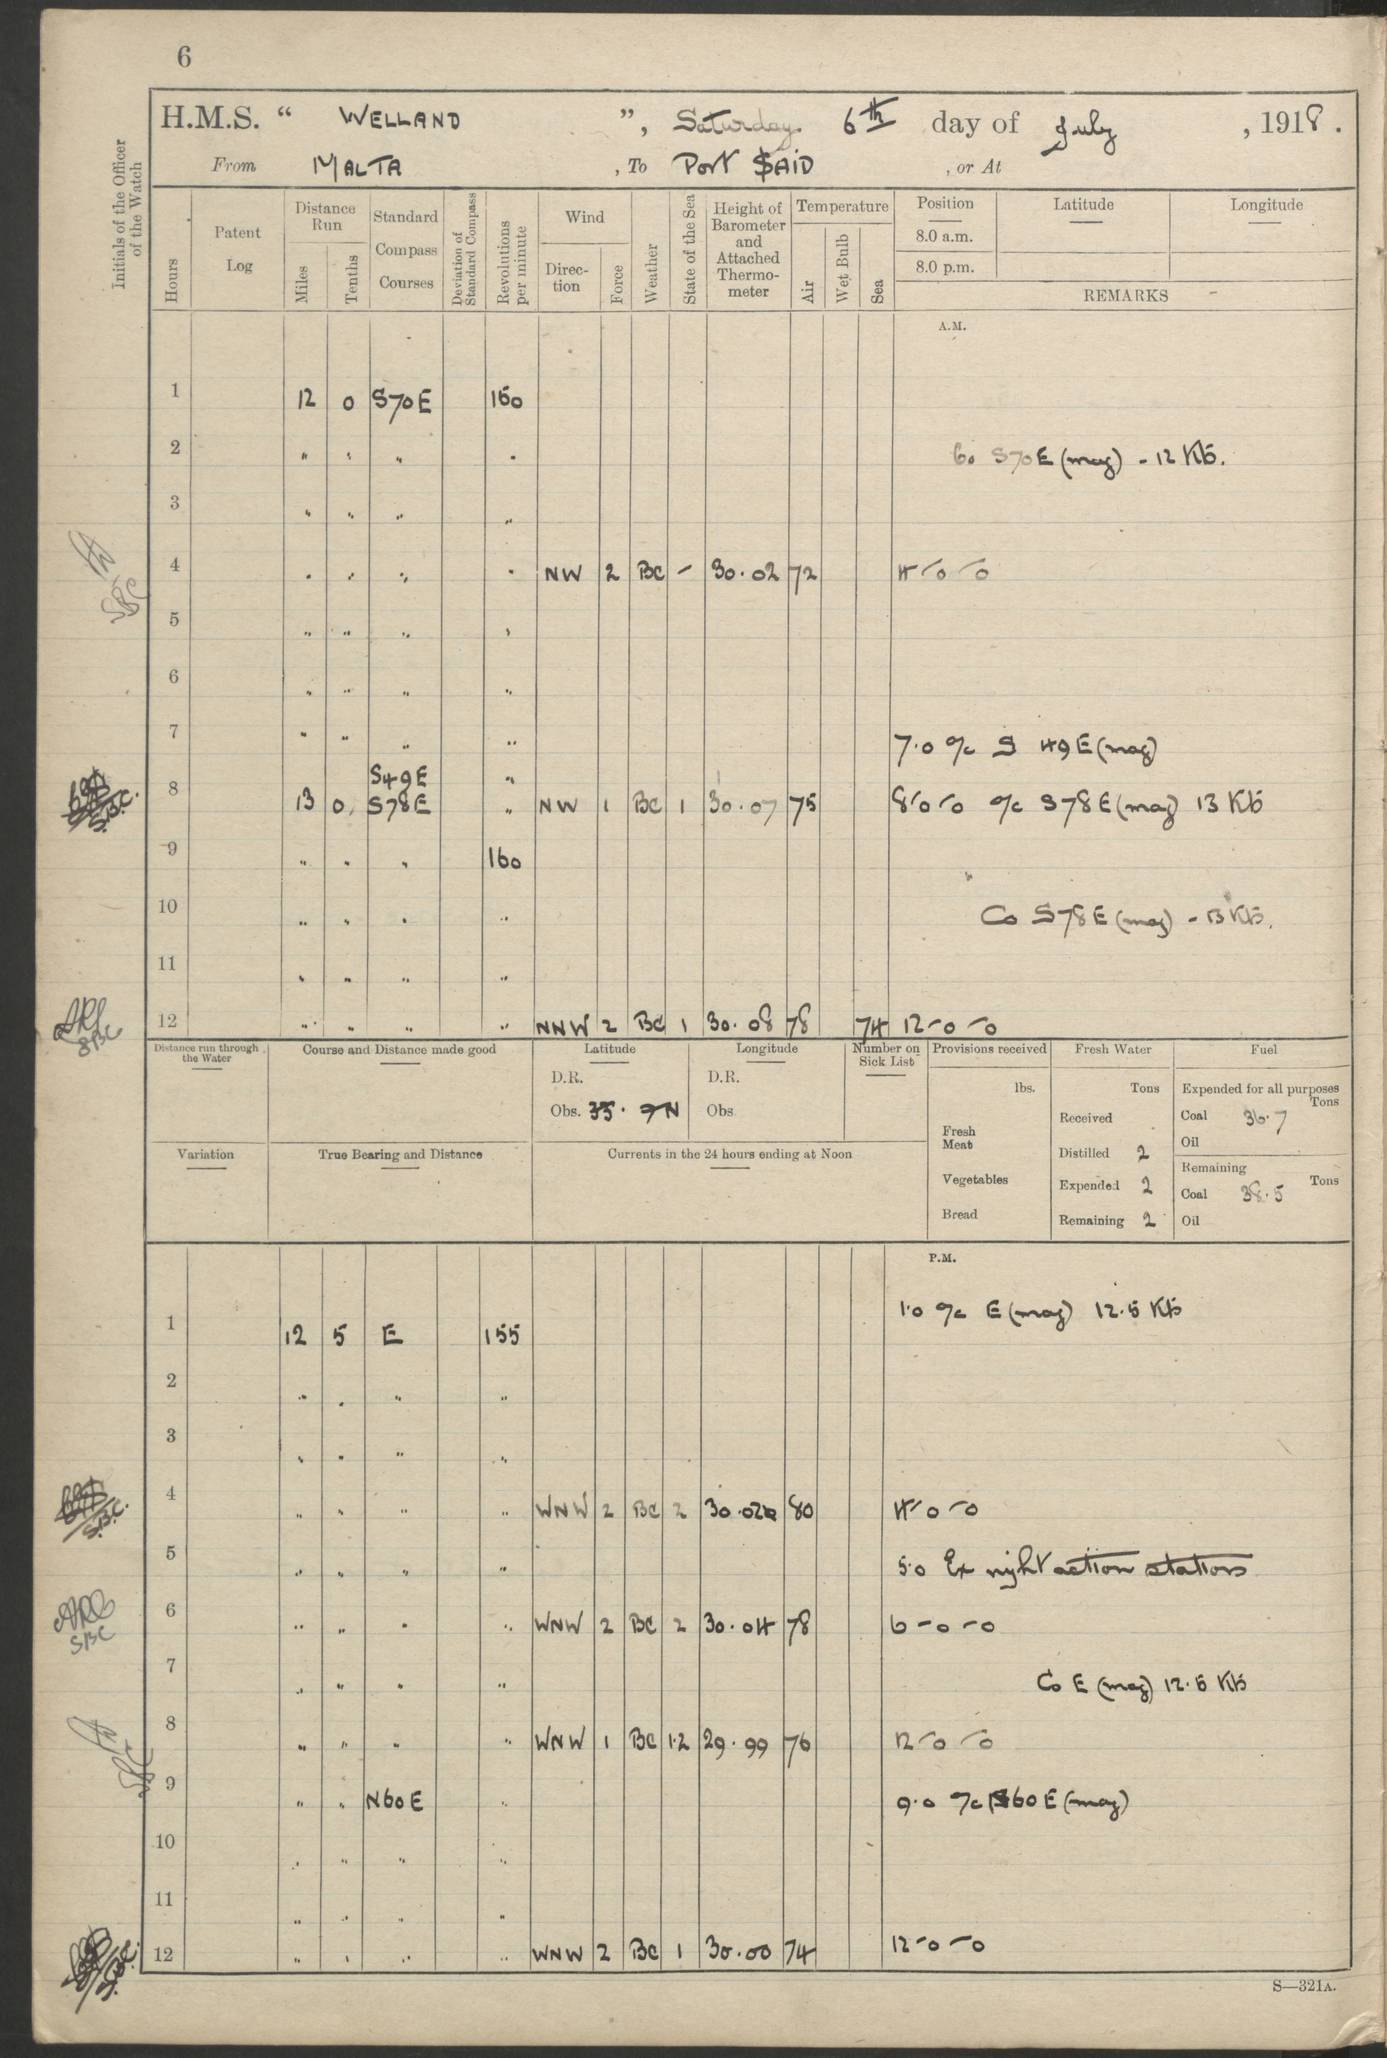 6
H.M.S. “ WELLAND ”, Saturday 6th day of July , 1918.
From MALTA , To PORT SAID , or At
Initials of the Officer of the Watch
Hours
Patent Log
Distance Run
Miles
Tenths
Standard Compass Courses
Deviation of Standard Compass
Revolutions per minute
Wind
Direc- tion
Force
Weather
State of the Sea
Height of Barometer and Attached Thermo- meter
Temperature
Air
Wet Bulb
Sea
Position
8.0 a.m.
8.0 p.m.
Latitude
Longitude
REMARKS
A.M.
1 12 0 S70E 160
2 " " " " Co S70E (mag) - 12 Kts.
3 " " " "
4 " " " " NW 2 BC - 30.02 72 4-0-0
5 " " " "
6 " " " "
7 " " " " 7.0 a/c S 49E (mag)
S49E "
8 13 0 S78E " NW 1 BC 1 30.07 75 8-0-0 a/c S78E (mag) 13 Kts
S.B.C.
9 " " " 160
10 " " " " Co S78E (mag) - 13 Kts.
11 " " " "
12 " " " " NNW 2 BC 1 30.08 78 74 12-0-0
SBC
Distance run through the Water
Course and Distance made good
Latitude
D.R.
Obs. 35. 7N
Longitude
D.R.
Obs
Number on Sick List
Provisions received
lbs.
Fresh Meat
Vegetables
Bread
Fresh Water
Tons
Received
Distilled 2
Expended 2
Remaining 2
Fuel
Expended for all purposes
Tons
Coal 36.7
Oil
Remaining
Tons
Coal 38.5
Oil
Variation
True Bearing and Distance
Currents in the 24 hours ending at Noon
P.M.
1.0 a/c E (mag) 12.5 Kts
1 12 5 E 155
2 " " " "
3 " " " "
4 " " " " WNW 2 BC 2 30.02 80 4-0-0
S.B.C.
5 " " " " 5.0 Ex night action stations
6 " " " " WNW 2 BC 2 30.04 78 6-0-0
SBC
7 " " " " Co E (mag) 12.5 Kts
8 " " " " WNW 1 BC 1.2 29.99 76 12-0-0
9 " " N60E " 9.0 a/c N60E (mag)
10 " " " "
11 " " " "
12 " " " " WNW 2 BC 1 30.00 74 12-0-0
S—321A.